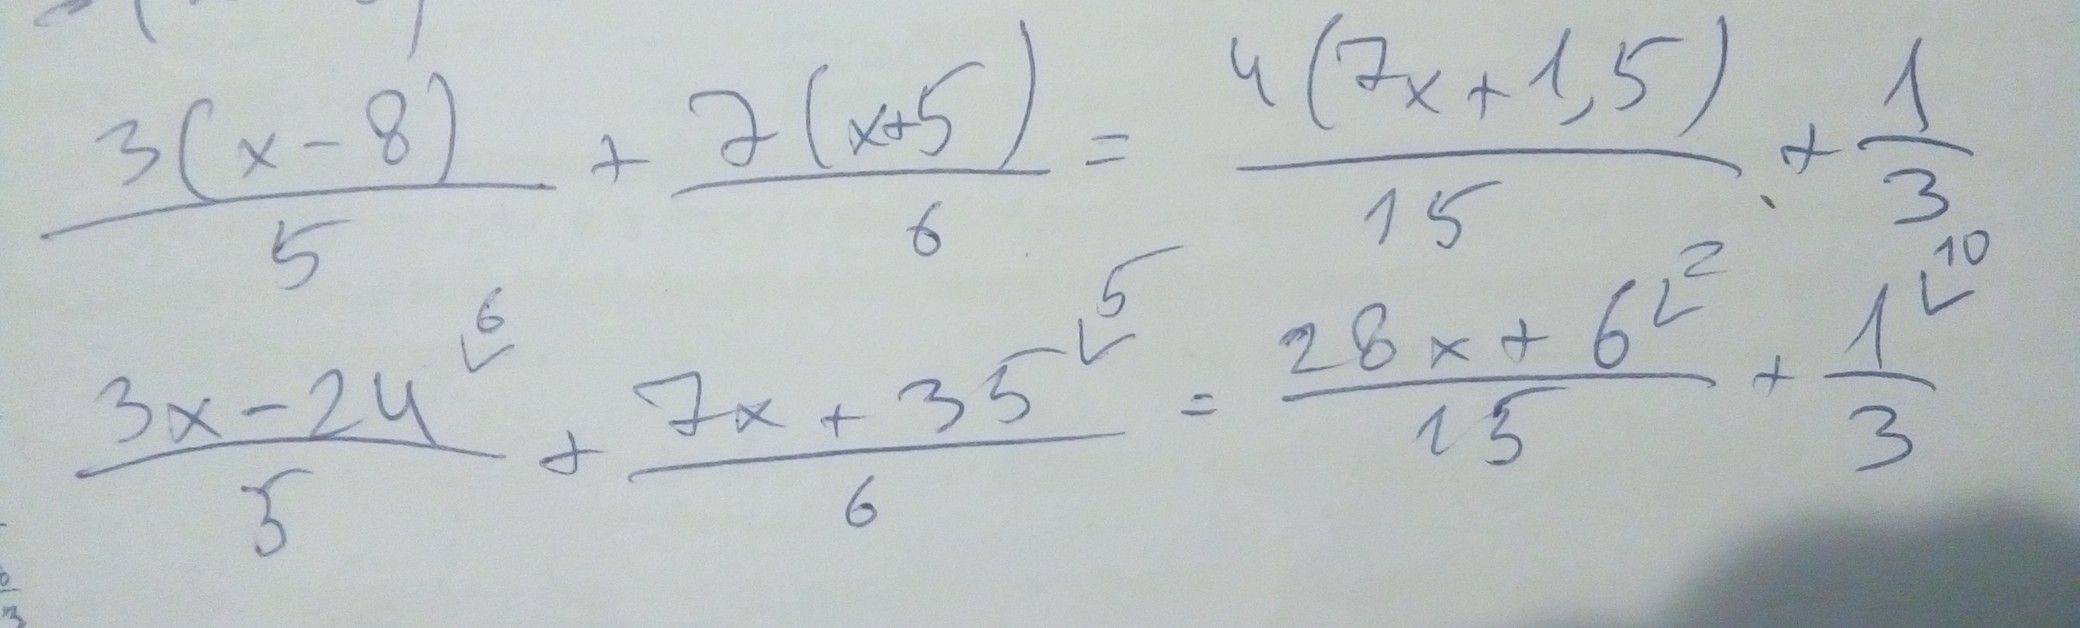 3(x-8)/5 + 7(x+5)/6 = 4(7x+1,5)/15 + 1/3
3x-24⁶/5 + 7x+35⁵/6 = 28x+6²/15 + 1¹⁰/3